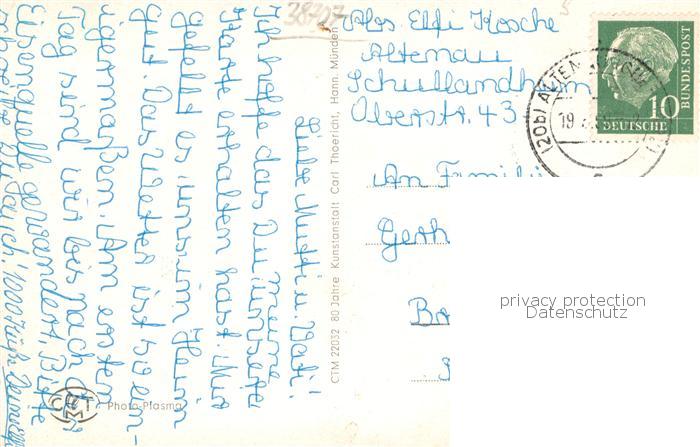 38707
Abs. Elfi Kosche
Altenau
Schullandheim
Oberstr. 43
10
DEUTSCHE
BUNDESPOST
(20b) ALTENAU
19
An Famili
Gerh
Ba
privacy protection
Datenschutz
Liebe Mutti u. Vati!
Ich hoffe das Du meine
Karte erhalten hast. Mir
gefällt es immer im Heim
gut. Das Wetter ist so ein-
igermaßen. Am ersten
Tag sind wir bis nach der
Eisenquelle gewandert. Bitte
schreibe Du auch! 1000 Küße
CTM 22032 80 Jahre Kunstanstalt Carl Thoericht, Hann. Münden
CTM
Photo-Plasma